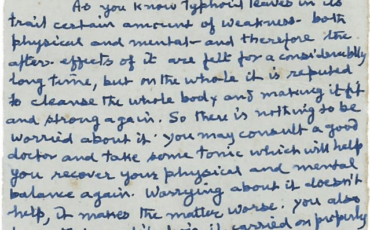 As you know typhoid leaves in its
trail certain amount of weakness - both
physical and mental - and therefore the
after-effects of it are felt for a considerably
long time, but on the whole it is reputed
to cleanse the whole body and making it fit
and strong again. So there is nothing to be
worried about it. You may consult a good
doctor and take some tonic which will help
you recover your physical and mental
balance again. Worrying about it doesn't
help, It makes the matter worse. You also
it carried on properly